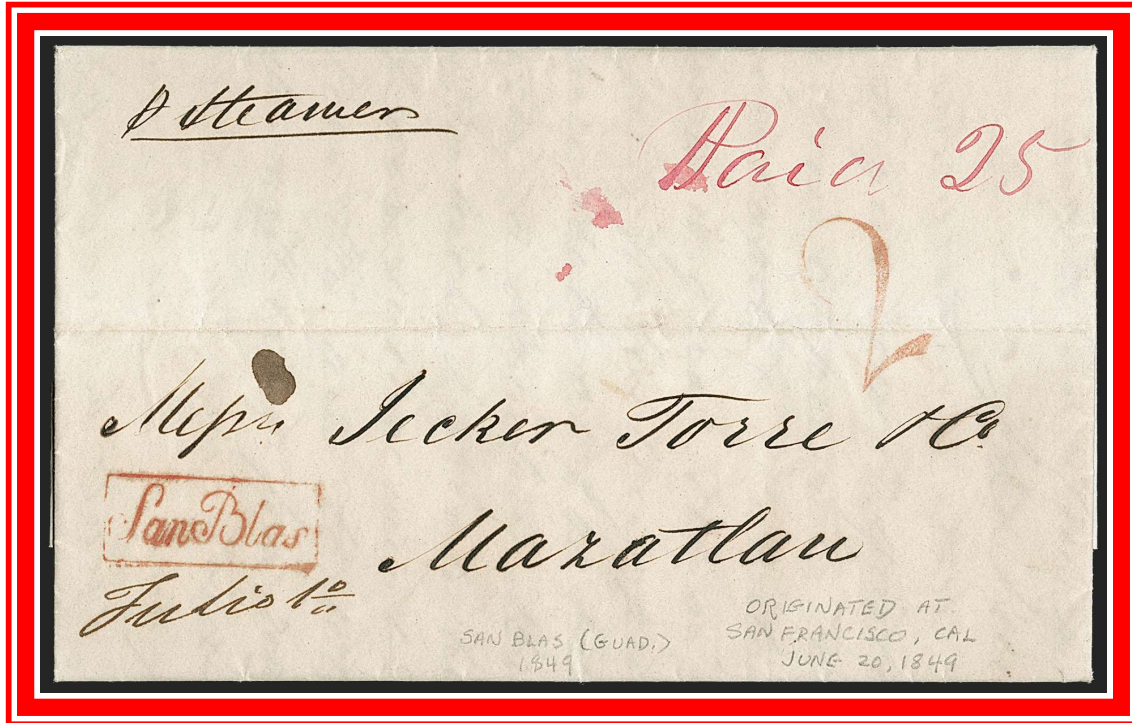 P Steamer
Paid 25
2
Messrs Jecker Torre & Co
San Blas
Mazatlan
Julio 1º
SAN BLAS (GUAD.)
1849
ORIGINATED AT
SAN FRANCISCO, CAL
JUNE 20, 1849